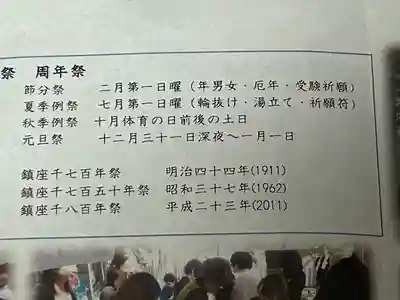 祭 周年祭
節分祭 二月第一日曜（年男女・厄年・受験祈願）
夏季例祭 七月第一日曜（輪抜け・湯立て・祈願符）
秋季例祭 十月体育の日前後の土日
元旦祭 十二月三十一日深夜～一月一日
鎮座千七百年祭 明治四十四年(1911)
鎮座千七百五十年祭 昭和三十七年(1962)
鎮座千八百年祭 平成二十三年(2011)